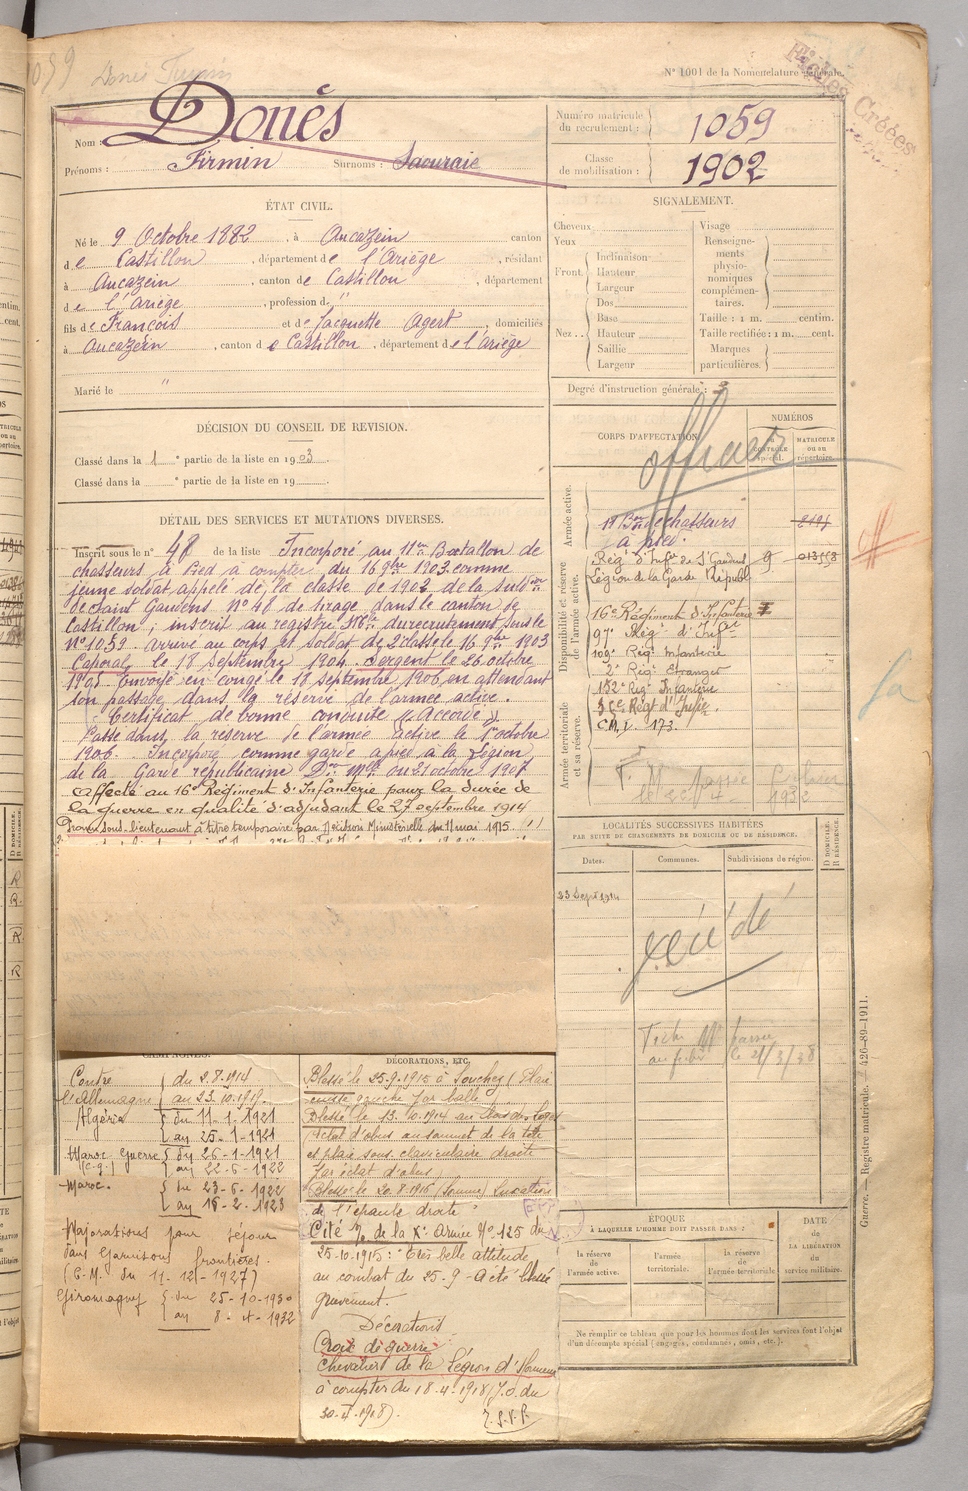 1059 Donès Firmin
N° 1001 de la Nomenclature générale.
Fiches Créées
Nom : Donès
Prénoms : Firmin Surnoms : Saouraie
Numéro matricule du recrutement : 1059
Classe de mobilisation : 1902
ÉTAT CIVIL.
Né le 9 Octobre 1882, à Aucazein canton
de Castillon, département de l'Ariège, résidant
à Aucazein, canton de Castillon, département
de l'Ariège, profession de "
fils de François et de Jacquette Agert, domiciliés
à Aucazein, canton de Castillon, département de l'Ariège
Marié le "
SIGNALEMENT.
Cheveux
Yeux
Front. Inclinaison
Hauteur
Largeur
Dos
Nez. Base
Hauteur
Saillie
Largeur
Visage
Renseignements physionomiques complémentaires.
Taille : 1 m. centim.
Taille rectifiée : 1 m. cent.
Marques particulières.
Degré d'instruction générale : 3
DÉCISION DU CONSEIL DE REVISION.
Classé dans la 1e partie de la liste en 1903
Classé dans la e partie de la liste en 19
DÉTAIL DES SERVICES ET MUTATIONS DIVERSES.
Inscrit sous le n° 48 de la liste Incorporé au 11me Bataillon de
chasseurs à Pied à compter du 16 9bre 1903 comme
jeune soldat appelé de la classe de 1902 de la subdon
de Saint Gaudens N° 48 de tirage dans le canton de
Castillon ; inscrit au registre Mle du recrutement sous le
N° 1059. arrivé au corps et soldat de 2e classe le 16 9bre 1903
Caporal le 18 septembre 1904. Sergent le 26 octobre
1905 Envoyé en congé le 18 septembre 1906 en attendant
son passage dans la réserve de l'armée active.
Certificat de bonne conduite "Accordé"
Passé dans la réserve de l'armée active le 1er octobre
1906. Incorporé comme garde à pied à la Légion
de la Garde républicaine Don Mlle du 21 octobre 1907
Affecté au 16e Régiment d'Infanterie pour la durée de
la guerre en qualité d'adjudant le 27 septembre 1914
Promu sous-lieutenant à titre temporaire par Décision Ministérielle du 11 mai 1915
CORPS D'AFFECTATION
NUMÉROS
CONTRÔLE spécial.
MATRICULE ou au répertoire.
officier
Armée active.
11 Bon de chasseurs
à pied
Disponibilité et réserve de l'armée active.
Rég d'Infie de St Gaudens 9 013558
Légion de la Garde Républ
16e Régiment d'Infanterie
97e Rég d'Infie
109e Rég Infanterie
2e Rég Etranger
152e Rég Infanterie
Armée territoriale et sa réserve.
35e Régt d'Infie
C.M.I. 173.
LOCALITÉS SUCCESSIVES HABITÉES
PAR SUITE DE CHANGEMENTS DE DOMICILE OU DE RÉSIDENCE.
Dates. Communes. Subdivisions de région.
D DOMICILE.
R RÉSIDENCE.
23 Sept 1914
Fiche M passée
le 21/3/38
CAMPAGNES.
Contre l'Allemagne du 2.8.1914
au 23.10.1919
Algérie du 11-1-1921
au 25-1-1921
Maroc Guerre du 26-1-1921
(C.G.) au 22-6-1922
Maroc. du 23-6-1922
au 16-2-1923
Majorations pour séjour
dans Garnisons frontières.
(C.M. du 11-12-1927)
Giromagny du 25-10-1930
au 8-4-1932
DÉCORATIONS, ETC.
Blessé le 25-9-1915 à Souchez (Plaie
cuisse gauche par balle)
Blessé le 13.10.1914 au Bois des Loges
(éclat d'obus au sommet de la tête
et plaie sous claviculaire droite
par éclat d'obus
Blessé le 20.8.1916 (Somme) Luxation
de l'épaule droite"
Cité de la Xe armée N° 125 du
25-10-1915 : "Très belle attitude
au combat du 25-9- A été blessé
gravement.
Décorations
Croix de guerre
Chevalier de la Légion d'Honneur
à compter du 18-4-1918 (J.O. du
T.S.V.P.
ÉPOQUE
À LAQUELLE L'HOMME DOIT PASSER DANS :
la réserve de l'armée active.
l'armée territoriale.
la réserve de l'armée territoriale
DATE
de
LA LIBÉRATION
du
service militaire.
Ne remplir ce tableau que pour les hommes dont les services font l'objet
d'un décompte spécial (engagés, condamnés, omis, etc.).
Guerre. — Registre matricule. — 426-89-1911.